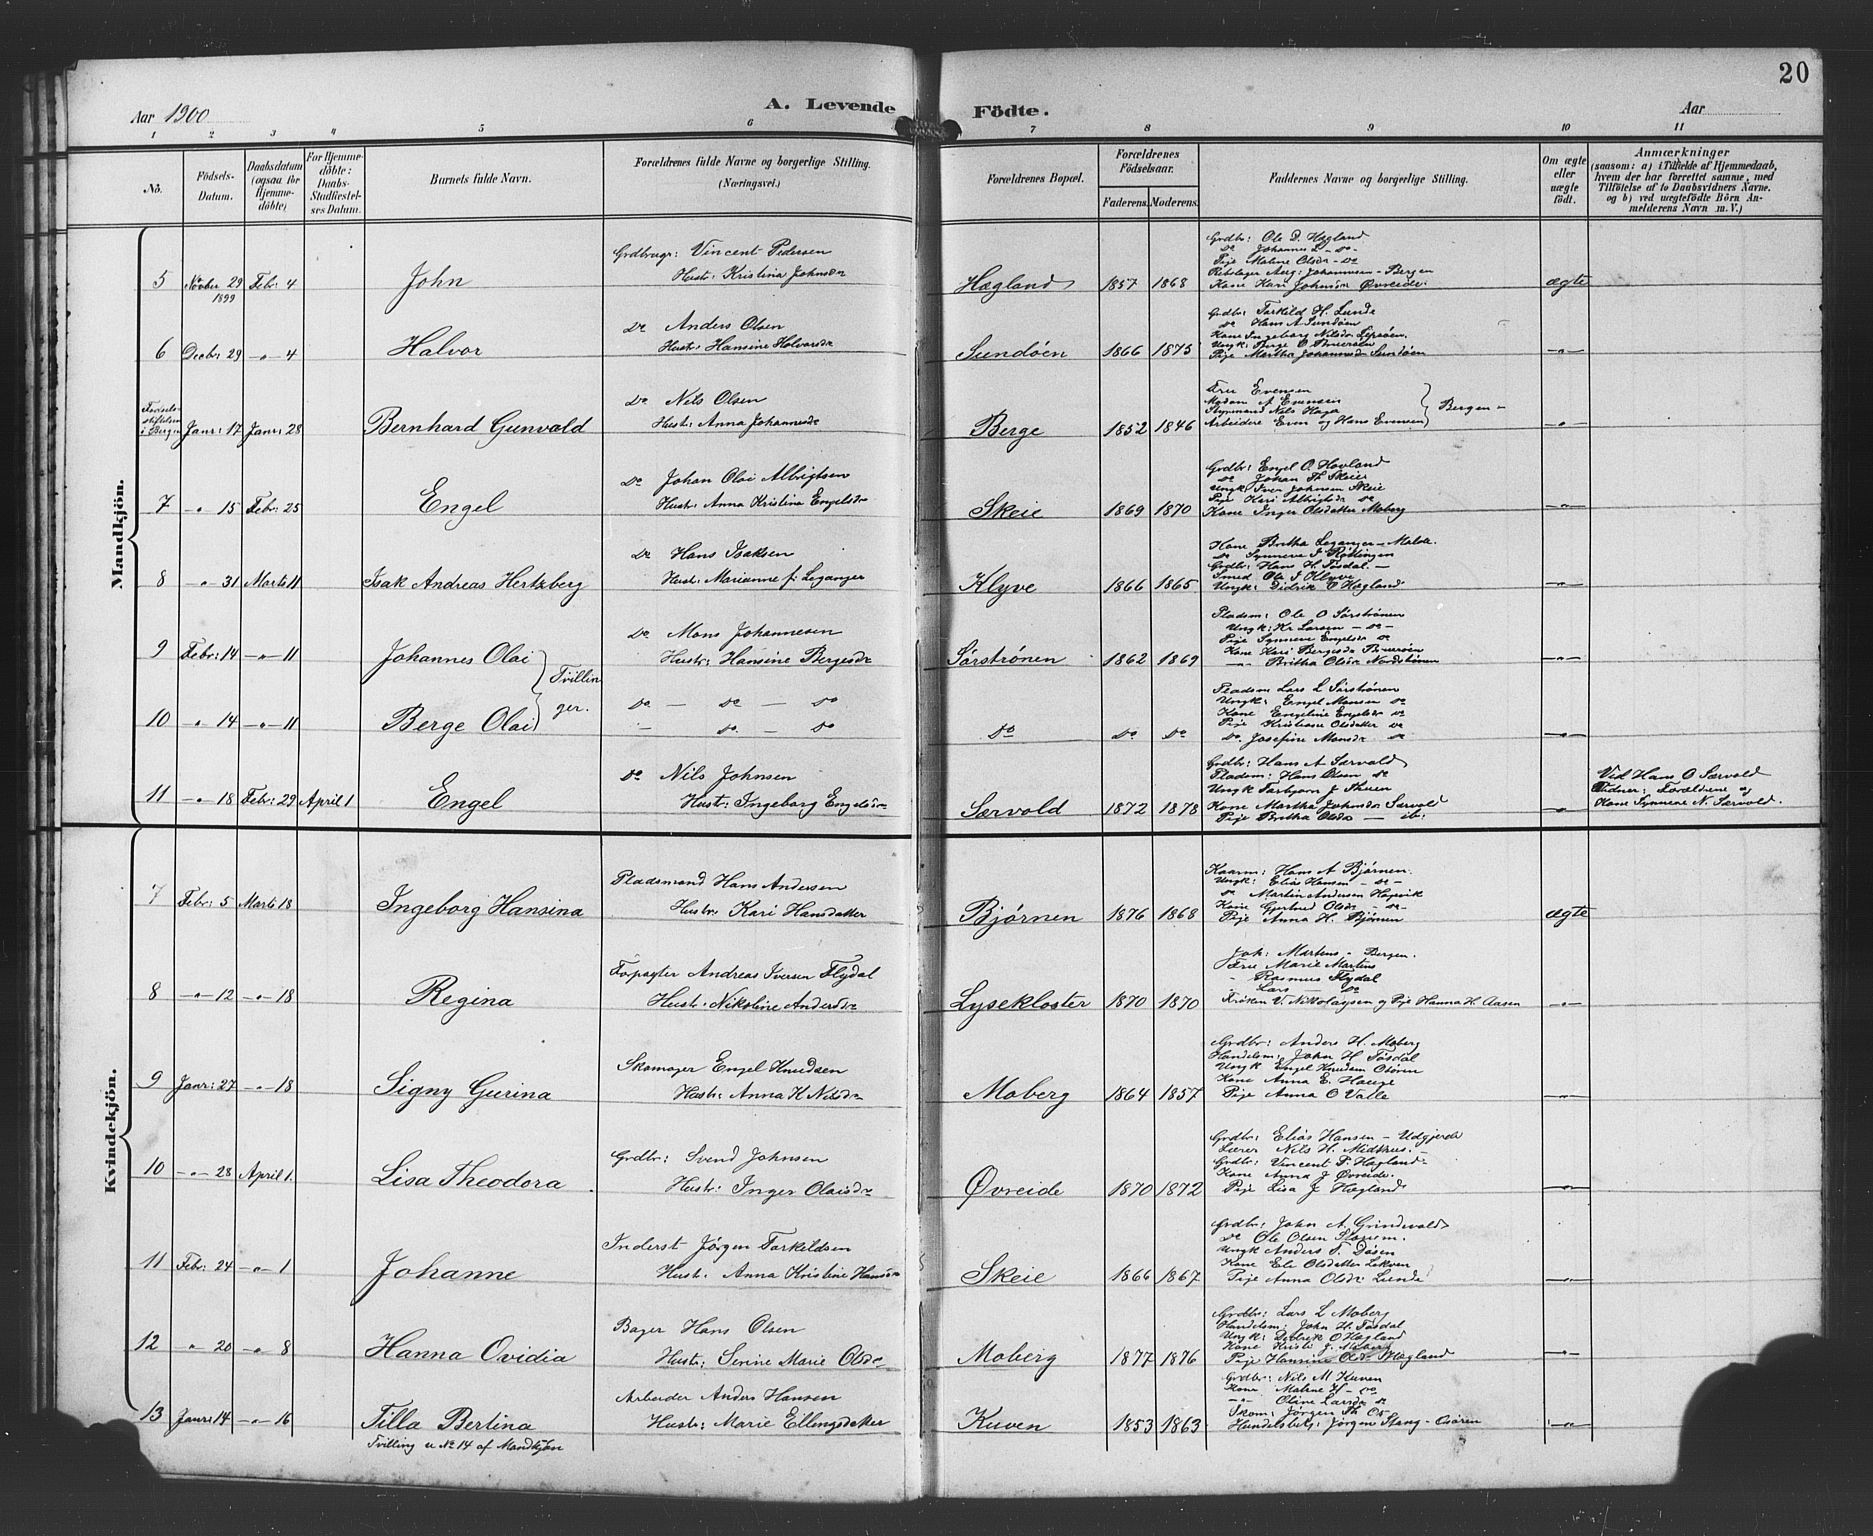 20
Aar 1900
A. Levende Födte.
Aar
1 2 3 4 5 6 7 8 9 10 11
No.
Födsels-Datum.
Daabsdatum (ogsaa for Hjemmedöbte)
For Hjemmedöbte: Daabs-Stadfæstelses Datum.
Barnets fulde Navn.
Forældrenes fulde Navne og borgerlige Stilling. (Næringsvei.)
Forældrenes Bopæl.
Forældrenes Födselsaar.
Faderens. Moderens.
Faddernes Navne og borgerlige Stilling.
Om ægte eller uægte födt.
Anmærkninger
(saasom: a) i Tilfælde af Hjemmedaab,
hvem der har forrettet samme, med
Tilföielse af to Daabsvidners Navne.
og b) ved uægtefödte Börn An-
melderens Navn m. V.)
Mandkjön.
5 Novber 29 1899 Febr: 4 John
Grdbrugr: Vincent Pedersen
Hustr: Kristina Johnsdr
Hægland 1857 1868
Grdbr: Ole D. Hægland
Do Johannes L - Do -
Pige Malene Olsdr - Do
Rebslager Aug: Johannesen - Bergen
Kone Kari Johnsdr Øvreide.
ægte
6 Decbr: 29 -"- 4 Halvor
Do Anders Olsen
Hustr: Hansine Halvorsdr
Sundöen 1866 1875
Grdbr: Torkild H. Lunde
Do Hans A Sundöen
Kone Ingeborg Nilsdr Lepsöen.
Ungk: Berge O Bruröen
Pige Martha Johannesdr Sundöen
-"-
Fødsels-
stiftelsen
i Bergen
Janr: 17 Janr: 28 Bernhard Gunvald
Do Nils Olsen
Hustr: Anna Johannesdr
Berge 1852 1846
Fru Evensen
Madam A Evensen
Styrmand Nils Haga
Arbeidere Even og Hans Evensen
Bergen -
-"-
7 -"- 15 Febr: 25 Engel
Do Johan Olai Albrigtsen
Hustr: Anna Kristina Engelsdr
Skeie 1869 1870
Grdbr: Engel O. Hovland
Do Johan Th Skeie
Ungk Iver Johnsen Skeie
Pige Kari Albrigtsdr Do
Kone Inger Olsdatter Moberg
-"-
8 -"- 31 Marts 11 Isak Andreas Hertzberg
Do Hans Isaksen
Hustr: Marianne f: Leganger
Klyve 1866 1865
Kone Britha Leganger - Malde.
Do Synneve J Röttingen
Grdbr: Hans H Tösdal -
Smed Ole J Klyve
Ungk: Didrik O Hægland
-"-
9 Febr: 14 -"- 11 Johannes Olai
Tvillinger.
Do Mons Johannesen
Hustr: Hansine Bergesdr
Sörströnen 1862 1869
Pladsm: Ole O Sörströnen
Ungk: Kr Larsen - Do -
Pige Synneve Engelsdr Do
Kone Kari Bergesdr Bruröen
-"- Britha Olsdr Nordströnen
-"-
10 " 14 -"- 11 Berge Olai
Do - Do - Do
- Do. - Do
Do Do Do
Pladsm Lars L Sörströnen
Ungk: Engel Monsen Do
Kone Engeline Engelsdr Do
Pige Kristiane Olsdatter Do
Do. Josefine Monsdr Do
-"-
11 -"- 18 Febr: 29 April 1 Engel
Do Nils Johnsen
Hustr: Ingeborg Engelsdr
Særvold 1872 1878
Grdbr: Hans A Særvold
Pladsm: Hans Olsen Do
Ungk Torbjörn J Thuen
Kone Martha Johnsdr Særvold
Pige Britha Olsdr - ib:
-"-
Ved Hans O Særvold
Vidner: Forældrene og
Kone Synneve N. Særvold.
Kvindekjön.
7 Febr: 5 Marts 18 Ingeborg Hansina
Pladsmand Hans Andersen
Hustr: Kari Hansdatter
Bjørnen 1876 1868
Kaarm: Hans A Bjørnen.
Ungk: Elias Hansen - Do -
Do Martin Andersen Høyvik
Kone Gjertrud Olsdr - Do -
Pige Anna H. Bjørnen
ægte
8 -"- 12 -"- 18 Regina
Forpagter Andreas Iversen Flydal
Hustr: Nikoline Andersdr
Lysekloster 1870 1870
Joh: Martens - Bergen.
Fru Marie Martens
- Rasmus Flydal
- Lars - Do
Fröken V. Nikolaysen og Pige Hanna H. Aasen
-"-
9 Janr: 27 -"- 18 Signy Gurina
Skomager Engel Knudsen
Hustr: Anna H Nilsdr
Moberg 1864 1857
Grdbr: Anders H. Moberg
Handelsm: John H Tösdal
Ungk Engel Knudsen Otören
Kone Anna E. Hauge
Pige Anna O Valle
-"-
10 -"- 28 April 1. Lisa Theodora
Grdbr: Svend Johnsen
Hustr: Inger Olaisdr
Øvreide 1870 1872
Grdbr: Elias Hansen - Udgjerde
Lærer Nils H. Midthus. -
Grdbr: Vincent P. Hægland
Kone Anna J Øvreide.
Pige Lisa J Hægland
-"-
11 Febr: 24 -"- 1 Johanne
Inderst Jörgen Torkildsen
Hustr: Anna Kristine Hansdr
Skeie 1866 1867
Grdbr: John A. Grindevold
Do Ole Olsen
Ungk Anders T. Døsen
Kone Eli Olsdatter Lekven
Pige Anna Olsdr Lunde
-"-
12 " 20 -"- 8 Hanna Ovidia
Bager Hans Olsen
Hustr: Serine Marie Olsdr
Moberg 1877 1876
Grdbr: Lars L Moberg
Handelsm: John H Tösdal
Ungk: Didrik O Hægland
Kone Kristi J. Moberg
Pige Hansine Olsdr Hægland
-"-
13 Janr: 14 -"- 16 Tilla Bertina
Tvilling u No 14 af Mandkjön
Arbeider Anders Hansen
Hustr: Marie Ellingsdatter
Kuven 1853 1863
Grdbr: Nils M Kuven
Kone Malene H - Do
-"- Oline Larsdr Do
Skom: Jörgen Th Os
Handelsbetj: Jörgen Stang - Osören
-"-